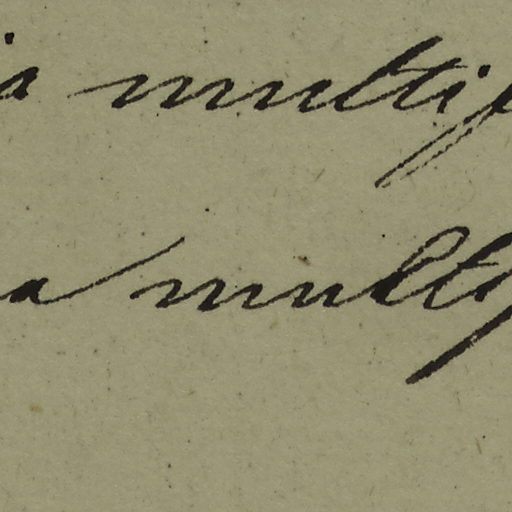 ia multip
a multip